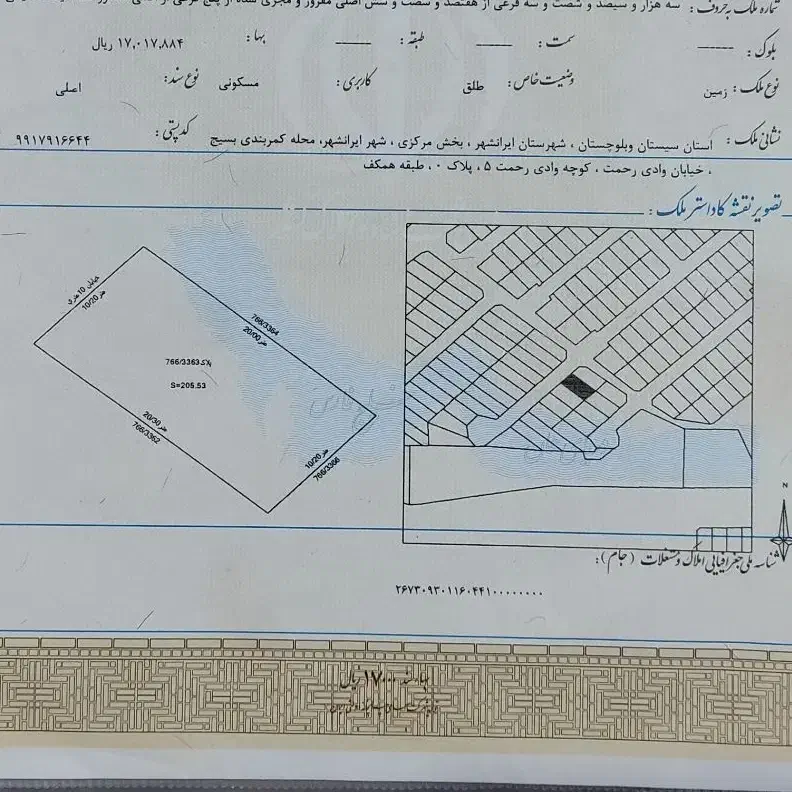 شماره ملک به‌حروف : سه هزار و سیصد و شصت و سه فرعی از هفتصد و شصت و شش اصلی مفروز و مجزی شده از پنج فرعی از
بلوک : ــــــ سمت : ــــــ طبقه : ــــــ بها : ۱۷,۰۱۷,۸۸۴ ریال
نوع ملک : زمین وضعیت خاص : طلق کاربری : مسکونی نوع سند : اصلی
نشانی ملک : استان سیستان وبلوچستان ، شهرستان ایرانشهر ، بخش مرکزی ، شهر ایرانشهر، محله کمربندی بسیج کدپستی : ۹۹۱۷۹۱۶۶۴۴
، خیابان وادی رحمت ، کوچه وادی رحمت ۵ ، پلاک ۰ ، طبقه همکف
تصویر نقشه کاداستر ملک :
خیابان 10 متری
10/20 متر
766/3364
20/00 متر
پلاک 766/3363
S=205.53
20/30 متر
766/3362
10/20 متر
766/3366
N
شناسه ملی جغرافیایی املاک و مستغلات (جام) :
۲۶۷۳۰۹۳۰۱۱۶۰۴۴۱۰۰۰۰۰۰۰۰
بهاء سند ۱۷۰۰۰ ریال